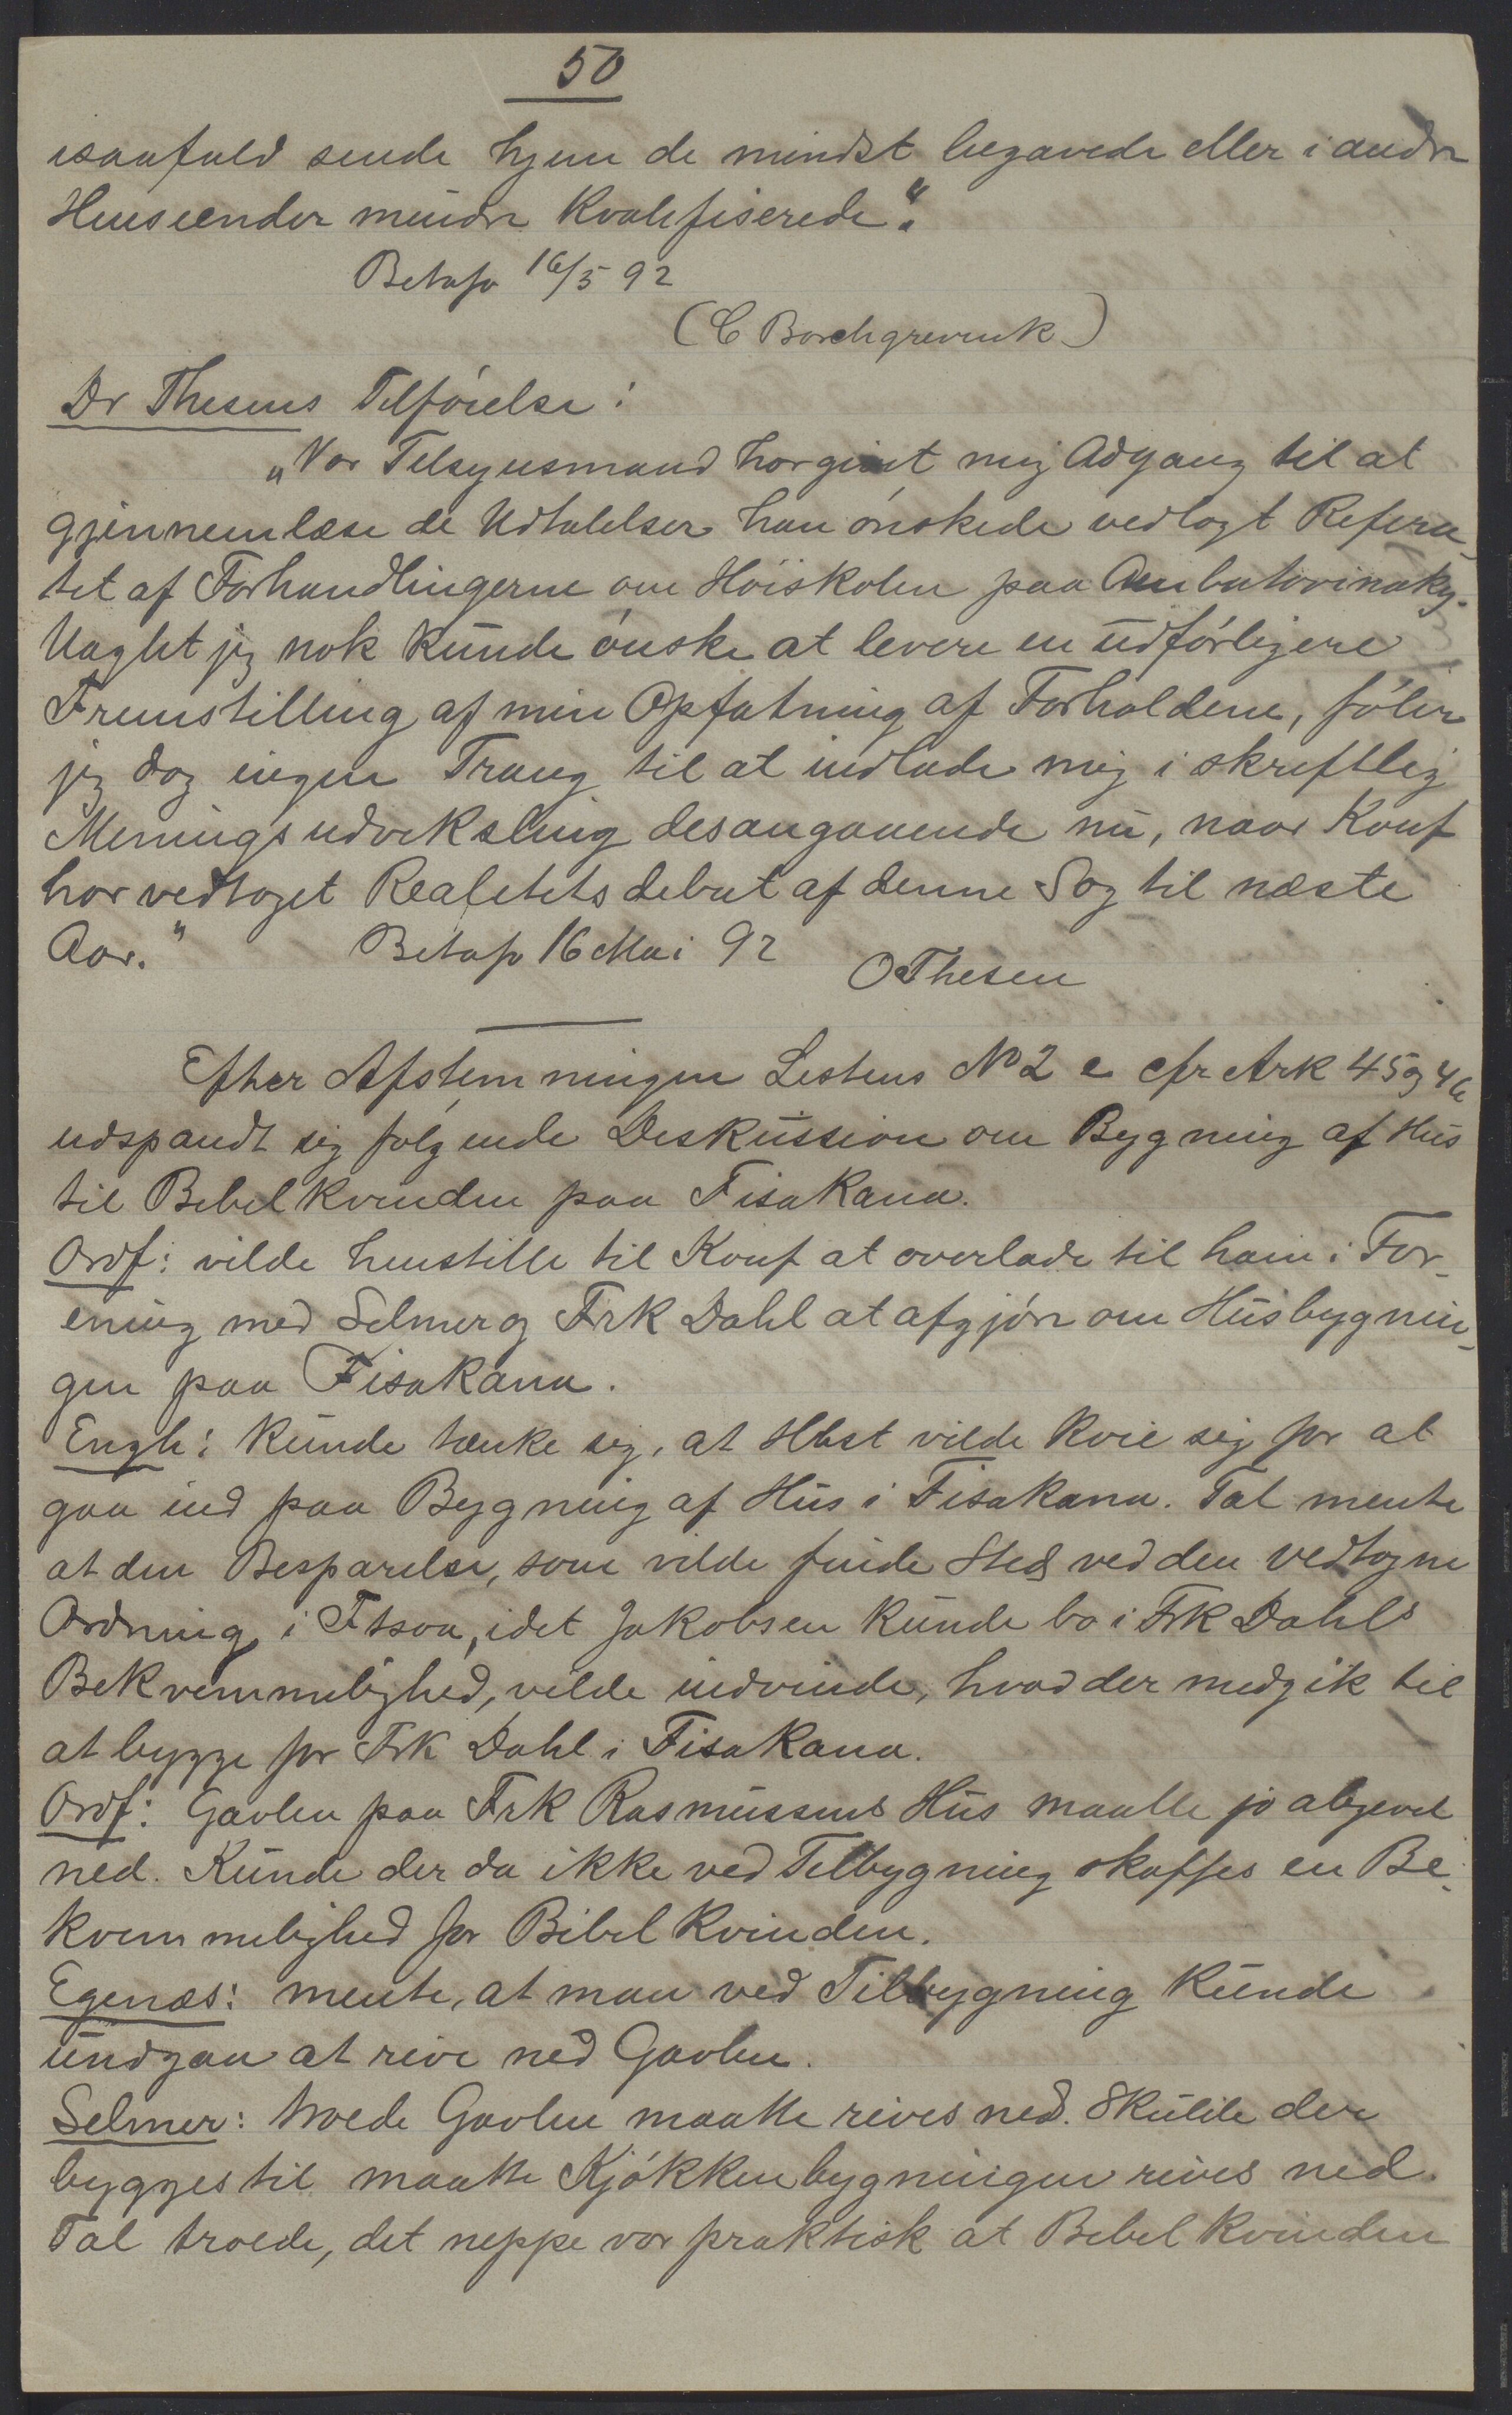 50
isaafald sende hjem de mindst begavede eller i andre
Henseender mindre kvalifiserede".
Betafo 16/5 92
(C Borchgrevink)
Dr Thesens Tilføielse:
„Vor Tilsynsmand har givet mig Adgang til at
gjennemlæse de Udtalelser han ønskede vedlagt Refera-
tet af Forhandlingerne om Høiskolen paa Ambatovinaky.
Uagtet jeg nok kunde ønske at levere en udførligere
Fremstilling af min Opfatning af Forholdene, føler
jeg dog ingen Trang til at indlade mig i skriftlig
Meningsudveksling desangaaende nu, naar Konf
har vedtaget Realitetsdebat af denne Sag til næste
Aar."   Betafo 16 Mai 92
O Thesen
Efter Afstemningen Listens No 2 e cfr Ark 45 og 46
udspandt sig følgende Diskussion om Bygning af Hus
til Bibelkvinden paa Fisakana.
Ordf: vilde henstille til Konf at overlade til ham i For-
ening med Selmer og Frk Dahl at afgjøre om Husbygnin-
gen paa Fisakana.
Engh: kunde tænke sig, at Hbst vilde kvie sig for at
gaa ind paa Bygning af Hus i Fisakana. Tal mente
at den Besparelse, som vilde finde Sted ved den vedtagne
Ordning i Ftsoa, idet Jakobsen kunde bo i Frk Dahls
Bekvemmelighed, vilde indvinde, hvad der medgik til
at bygge for Frk Dahl i Fisakana.
Ordf: Gavlen paa Frk Rasmussens Hus maatte jo alligevel
ned. Kunde der da ikke ved Tilbygning skaffes en Be-
kvemmelighed for Bibelkvinden.
Egenæs: mente, at man ved Tilbygning kunde
undgaa at rive ned Gavlen.
Selmer: troede Gavlen maatte rives ned. Skulde der
bygges til maatte Kjøkkenbygningen rives ned.
Tal troede, det neppe var praktisk at Bibelkvinden